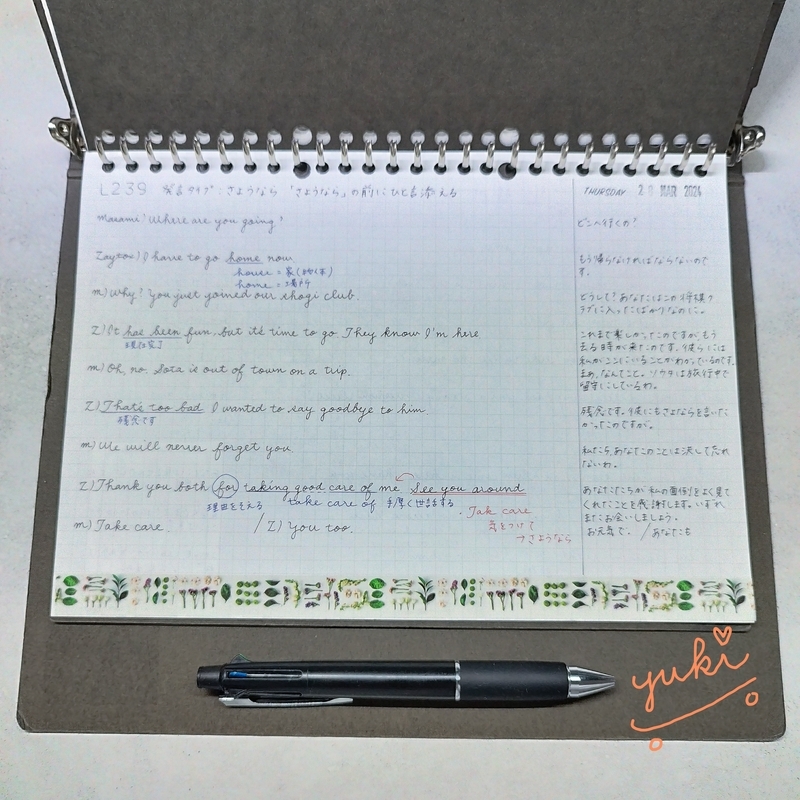 L239 発言タイプ:さようなら 「さようなら」の前にひと言添える
THURSDAY 28 MAR 2024
Masami) Where are you going?
どこへ行くの?
Zayzoo) I have to go home now
house = 家(物体)
home = 場所
もう帰らなければならないので
す。
m) Why? You just joined our shogi club.
どうして? あなたはこの将棋ク
ラブに入ったばかりなのに。
Z) It has been fun, but it's time to go. They know I'm here
現在完了
これまで楽しかったのですがもう
去る時が来たのです。彼らには
私がここにいることがわかっているのです。
m) Oh, no. Sota is out of town on a trip.
まあ、なんてこと。ソウタは旅行中で
留守にしているわ。
Z) That's too bad I wanted to say goodbye to him
残念です
残念です。彼にもさよならを言いた
かったのですが。
m) We will never forget you
私たち、あなたのことは決して忘れ
ないわ。
Z) Thank you both for taking good care of me See you around
理由を支える take care of 手厚く世話する
あなたたちが私の面倒をよく見て
くれたことを感謝します。いずれ
またお会いしましょう。
・Take care
気をつけて
→さようなら
m) Take care. / Z) You too.
お元気で。 / あなたも
yuki